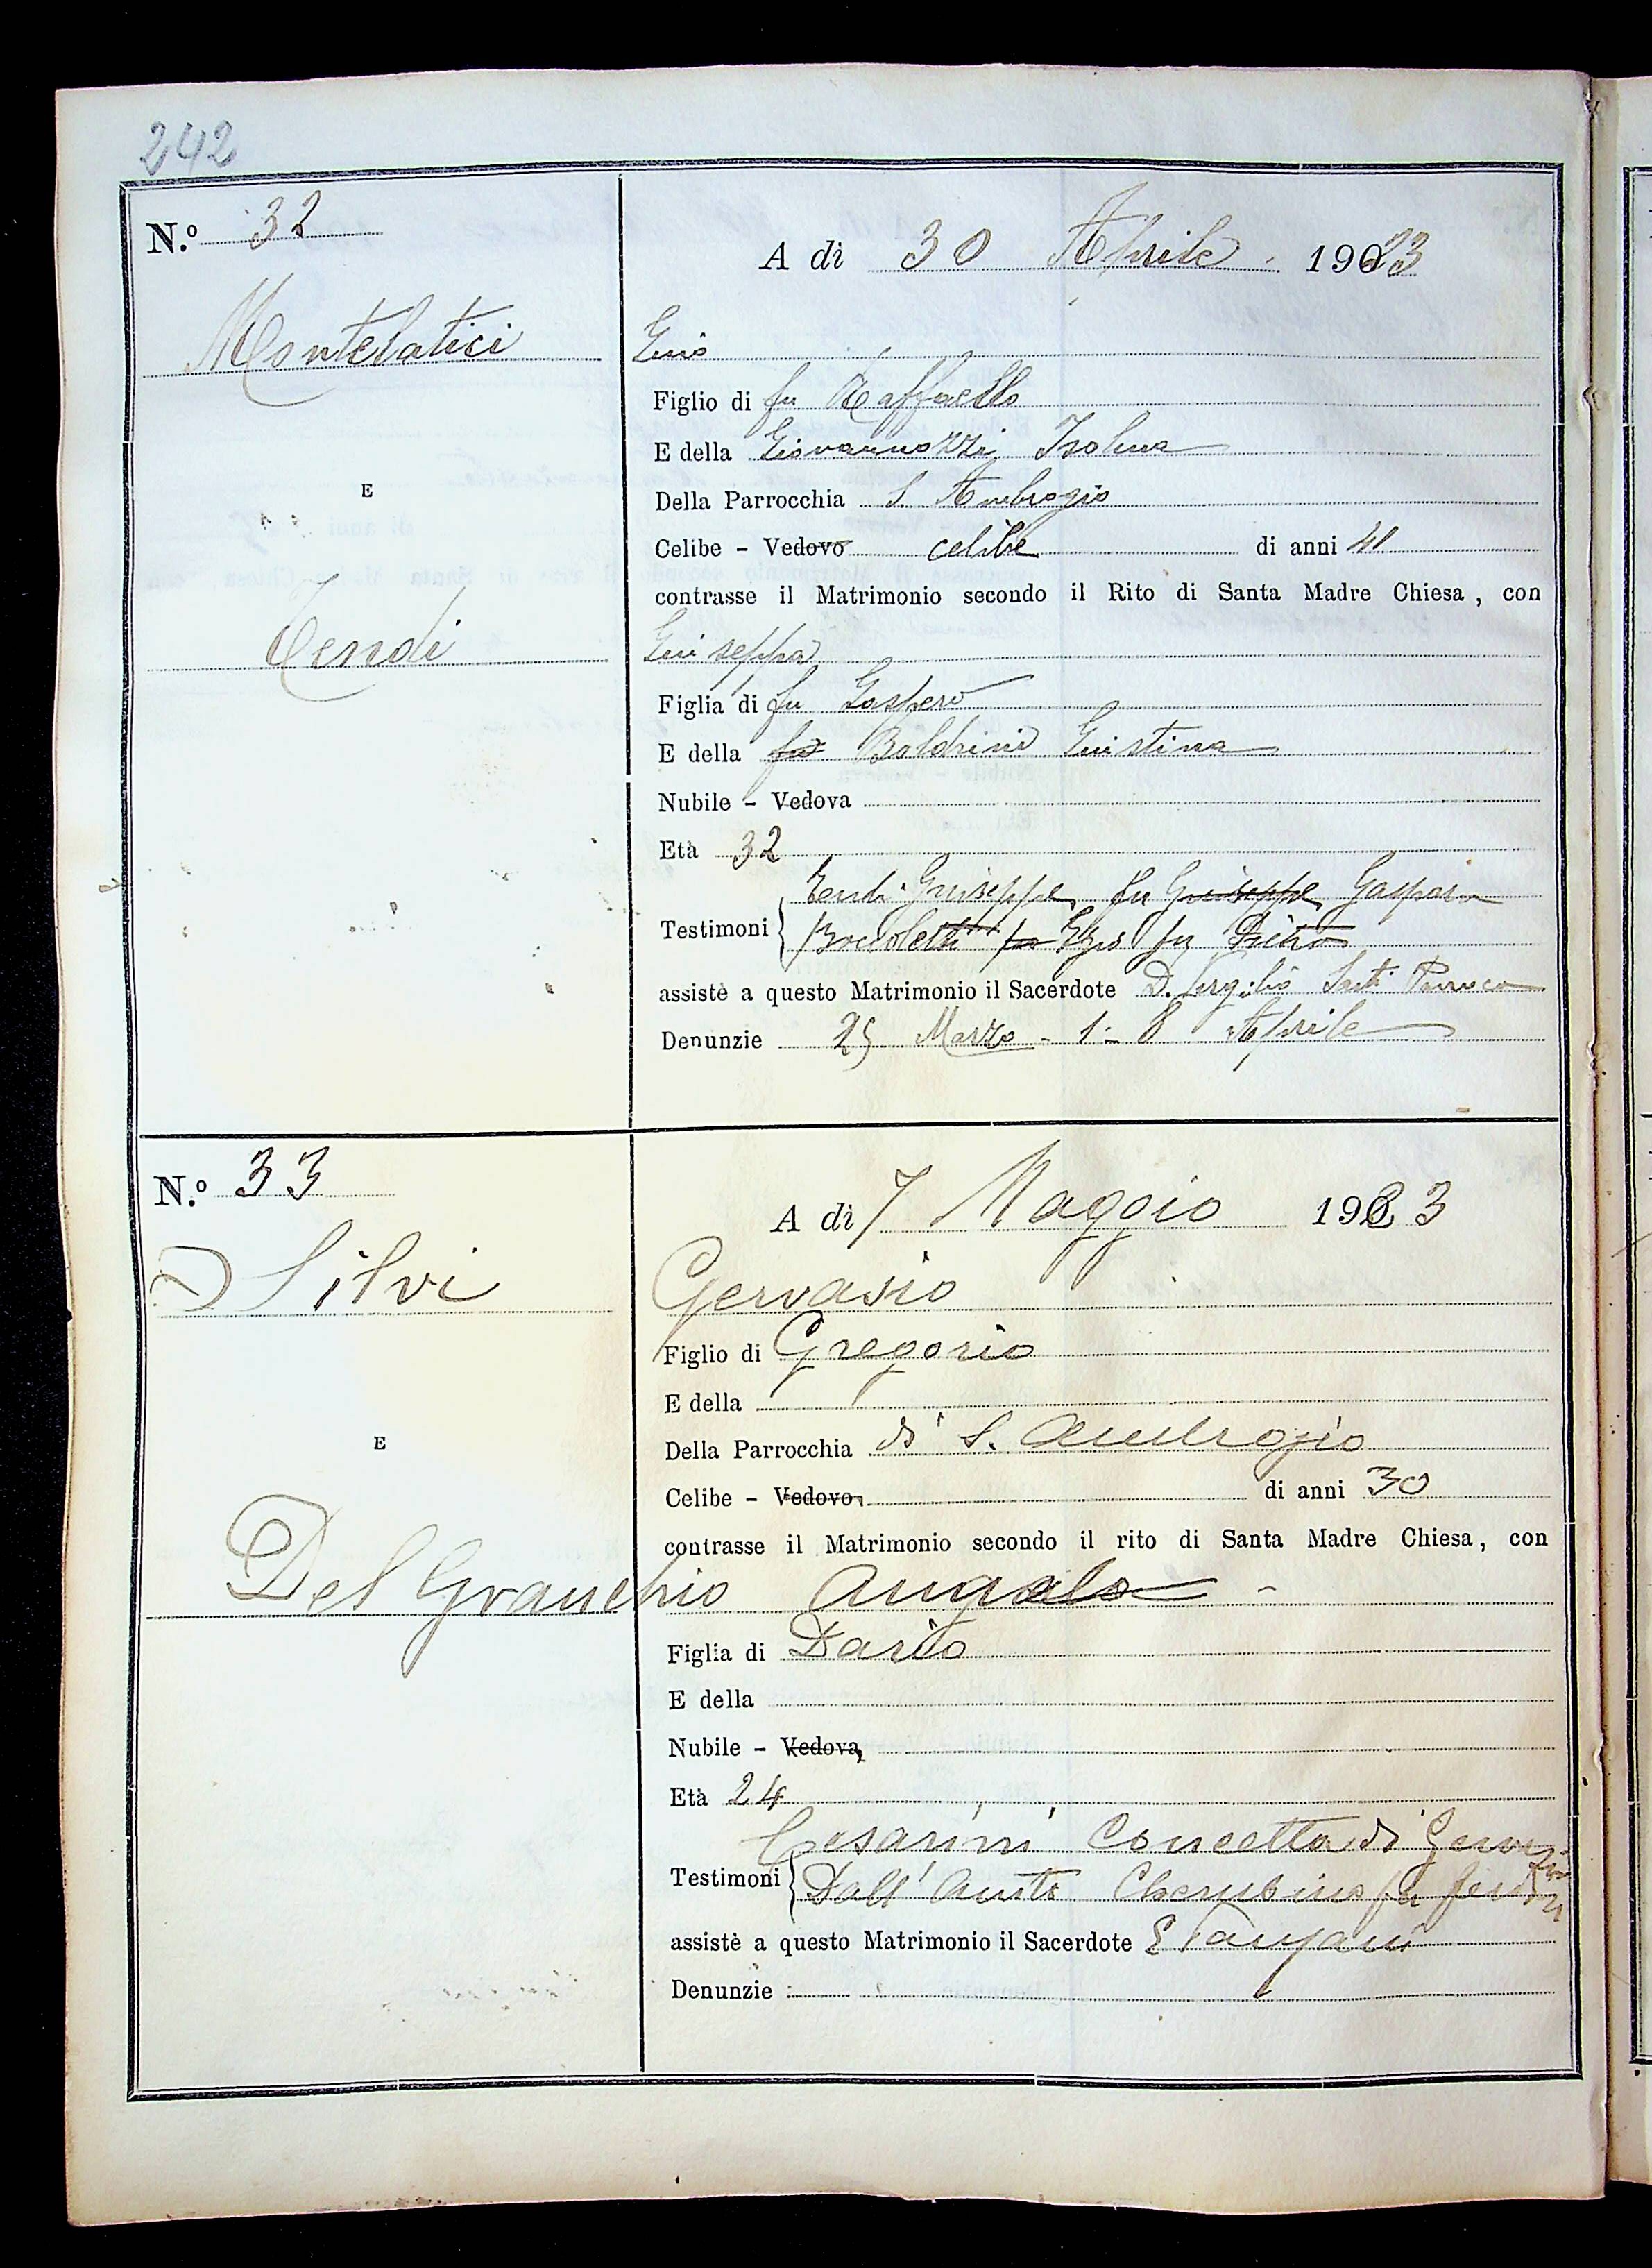 242
N.o 32
A dì 30 Aprile 1923
Montelatici
Gino
Figlio di fu Raffaello
E della Giovannozzi Isolina
Della Parrocchia S. Ambrogio
E
Celibe - Vedovo celibe di anni 41
contrasse il Matrimonio secondo il Rito di Santa Madre Chiesa, con
Tendi
Giuseppa
Figlia di fu Gaspero
E della fu Baldrini Giustina
Nubile - Vedova
Età 32
Tendi Giuseppe fu Giuseppe Gaspero
Testimoni { fu Ezio fu Pietro
assistè a questo Matrimonio il Sacerdote D. Virgilio Santi Parroco
Denunzie 25 Marzo - 1 - 8 Aprile
N.o 33
A dì 7 Maggio 1923
Silvi
Gervasio
Figlio di Gregorio
E della
Della Parrocchia di S. Ambrogio
E
Celibe - Vedovo di anni 30
contrasse il Matrimonio secondo il rito di Santa Madre Chiesa, con
Del Granchio Angela
Figlia di Dario
E della
Nubile - Vedova,
Età 24
Cesarini Concetta di
Testimoni { Dall' Cherubino fu
assistè a questo Matrimonio il Sacerdote E Tanzani
Denunzie